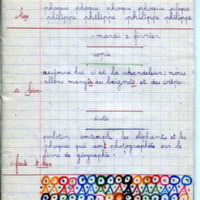 phoque phoque phoque phoque phoque
philippe philippe philippe philippe
mardi 2 février
copie
aujourd'hui c'est la chandeleur : nous
allons manger des beignets et des crêpes.
dictée
contemple les éléphants et les
phoques qui sont photographiés sur le
livre de géographie.